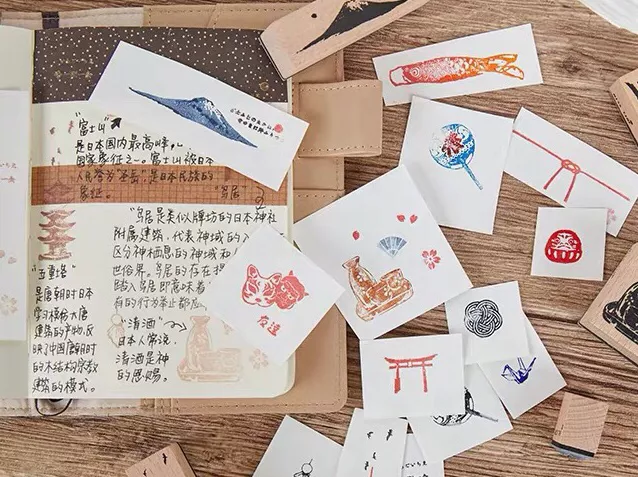 "富士山"
是日本国内最高峰,
国家象征之一。富士山被日本
人民誉为"圣岳"是日本民族的
象征。
"鸟居"
"鸟居是类似牌坊的日本神社
附属建筑,代表神域的入
区分神栖息的神域和
世俗界。鸟居的存在
踏入鸟居即意味着
有的行为举止都应
"五重塔"
是唐朝时日本
学习模仿大唐
建筑的产物,反
映了中国唐朝时
的木结构宗教
建筑的模式。
"清酒"
日本人常说,
清酒是神
的恩赐。
友達